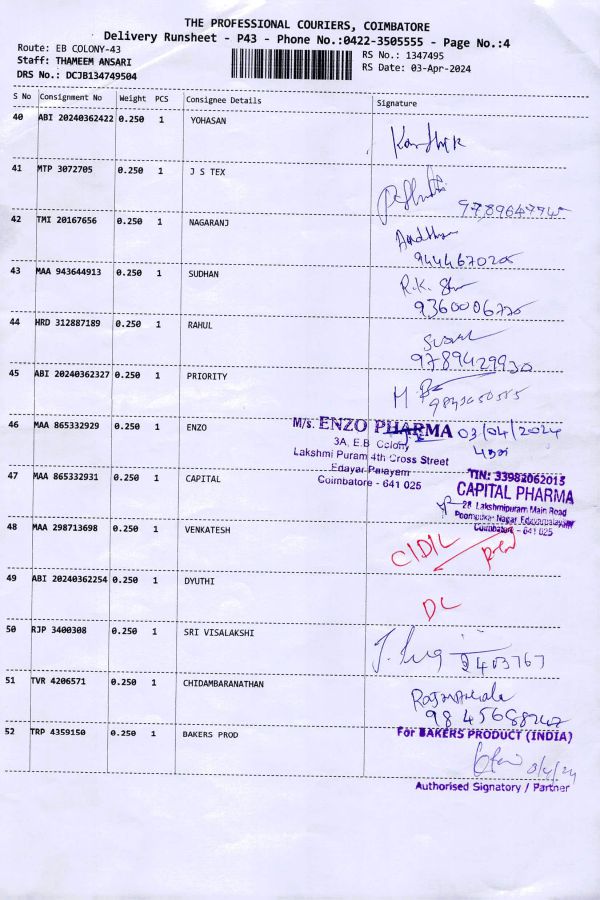 THE PROFESSIONAL COURIERS, COIMBATORE
Delivery Runsheet - P43 - Phone No.:0422-3505555 - Page No.:4
Route: EB COLONY-43
Staff: THAMEEM ANSARI
DRS No.: DCJB134749504
RS No.: 1347495
RS Date: 03-Apr-2024
S No Consignment No Weight PCS Consignee Details Signature
40 ABI 20240362422 0.250 1 YOHASAN
Karthik
41 MTP 3072705 0.250 1 J S TEX
42 TMI 20167656 0.250 1 NAGARANJ
9444670205
43 MAA 943644913 0.250 1 SUDHAN
R.K.
44 HRD 312887189 0.250 1 RAHUL
9789429930
45 ABI 20240362327 0.250 1 PRIORITY
46 MAA 865332929 0.250 1 ENZO
M/s. ENZO PHARMA 03/04/2024
3A, E.B. Colony,
Lakshmi Puram 4th Cross Street
Edayar Palayam
Coimbatore - 641 025
47 MAA 865332931 0.250 1 CAPITAL
TIN: 33982062015
CAPITAL PHARMA
28, Lakshmipuram Main Road
Coimbatore - 641 025
48 MAA 298713698 0.250 1 VENKATESH
49 ABI 20240362254 0.250 1 DYUTHI
DL
50 RJP 3400308 0.250 1 SRI VISALAKSHI
2403767
51 TVR 4206571 0.250 1 CHIDAMBARANATHAN
52 TRP 4359150 0.250 1 BAKERS PROD
For BAKERS PRODUCT (INDIA)
Authorised Signatory / Partner